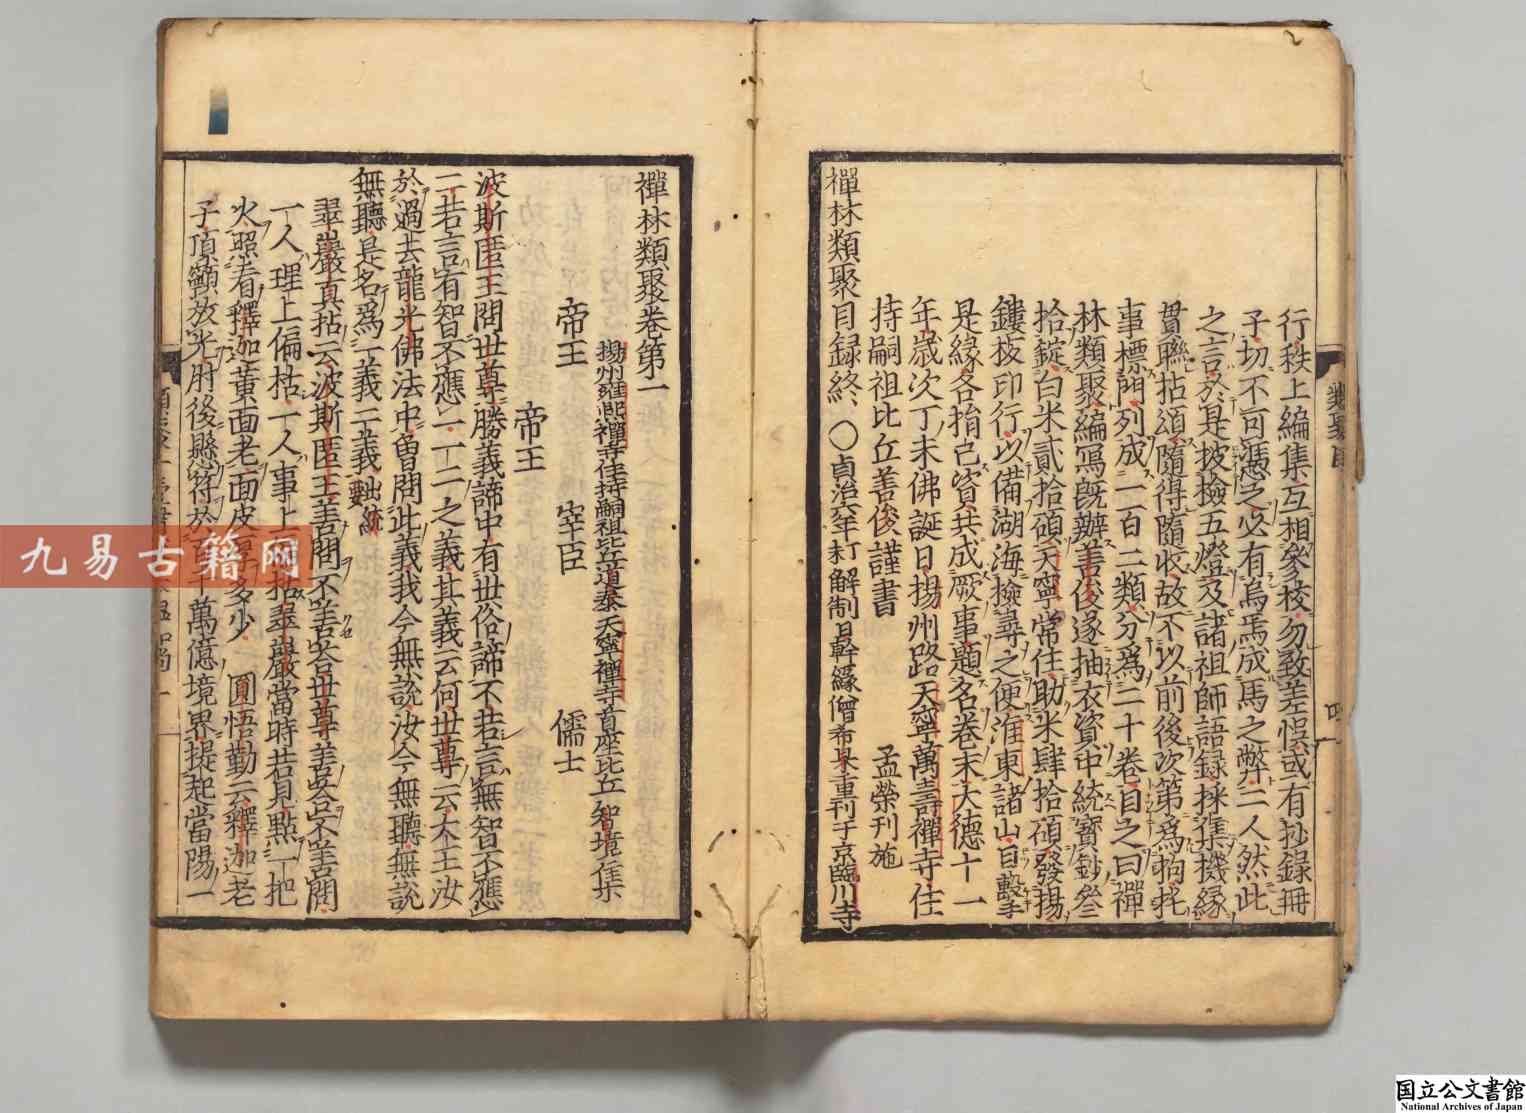 行秩上編集互相參挍勿致差悮或有抄錄冊
子切不可憑之必有烏焉成馬之弊二人然此
之言於是披撿五燈及諸祖師語録採集機緣
貫聯拈頌隨得隨收故不以前後次第爲拘㧌
事標門列成一百二類分爲二十卷目之曰禪
林類聚編寫既辦善俊遂抽衣資中統寶鈔叁
拾錠白米貳拾碩天寧常住助米肆拾碩發揚
鏤板印行以備湖海撿尋之便淮東諸山目擊
是緣各捐己資共成厥事題名卷末大德十一
年歲次丁未佛誕日揚州路天寧萬壽禪寺住
持嗣祖比丘善俊謹書 孟榮刊施
禪林類聚目録終 〇貞治六年 解制日幹緣僧希杲重刊于京臨川寺
禪林類聚卷第一
揚州雍熙禪寺住持嗣祖比丘道泰 天寧禪寺首座比丘智境集
帝王 宰臣 儒士
帝王
波斯匿王問世尊勝義諦中有世俗諦不若言無智不應
二若言有智不應一一二之義其義云何世尊云大王汝
於過去龍光佛法中曽問此義我今無說汝今無聽無説
無聽是名爲一義二義 出統要
翠巖真拈云波斯匿王善問不善荅世尊善荅不善問
一人理上偏枯一人事上偏枯翠巖當時若見點一把
火照看釋迦黄面老面皮厚多少 圓悟勤云釋迦老
子頂𩕳放光肘後懸符於百千萬億境界提起當陽一
九易古籍网
国立公文書館
National Archives of Japan